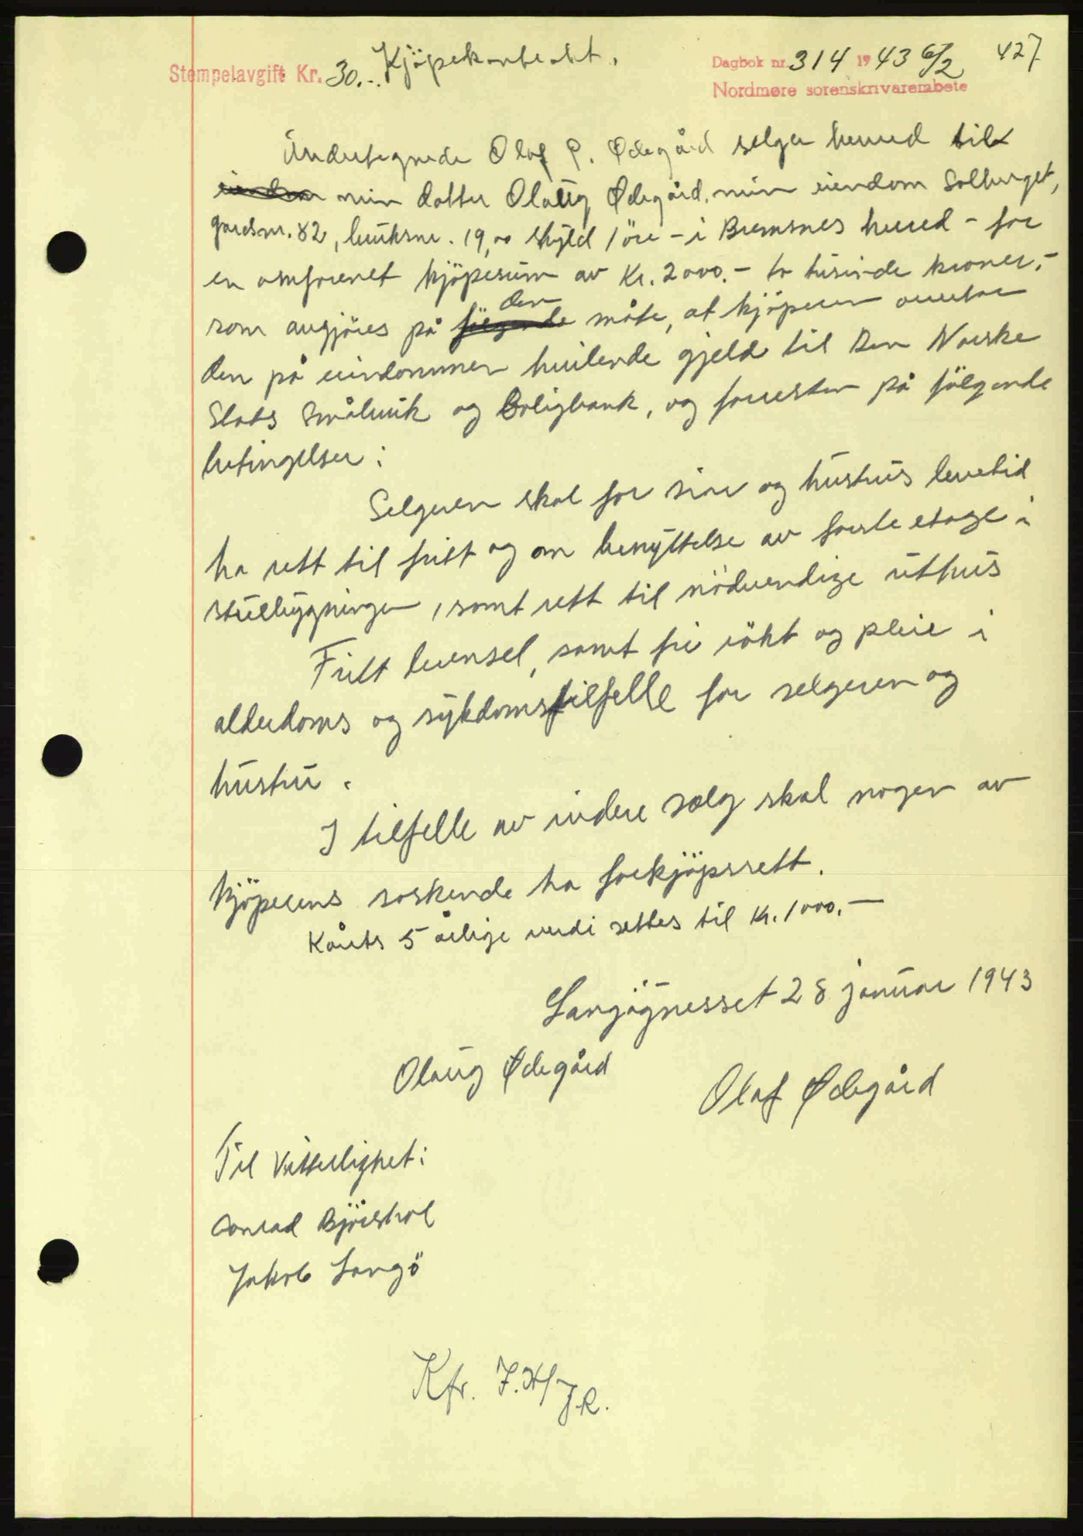 Stempelavgift Kr. 30.-. Kjöpekontrakt. Dagbok nr. 314 1943 6/2 427
Nordmøre sorenskriverembete
Undertegnede Olaf P. Ødegård selger herved til
min datter Olaug Ødegård, min eiendom Solberget,
gardsnr. 82, bruksnr. 19, av skyld 1 öre - i Bremsnes herred - for
en omforenet kjöpesum av Kr. 2000.- to tusinde kroner,-
som avgjöres på den måte, at kjöperen overtar
den på eiendommen hvilende gjeld til Den Norske
Stats Småbruk og Boligbank, og forresten på fölgende
betingelser:
Selgeren skal for sin og hustrus levetid
ha rett til fritt og om benyttelse av förste etage i
stuebygningen, samt rett til nödvendige uthus
Fritt levensel, samt fri rökt og pleie i
alderdoms og sykdomstilfelle for selgeren og
hustru.
I tilfelle av videre salg skal nogen av
kjöperens söskende ha forkjöpsrett.
Kårets 5 årlige verdi settes til Kr. 1000.-
Langöynesset 28 januar 1943
Olaug Ødegård
Olaf Ødegård
Til Vitterlighet:
Conrad Björshol
Jakob Langö
Kfr. J.H/JR.